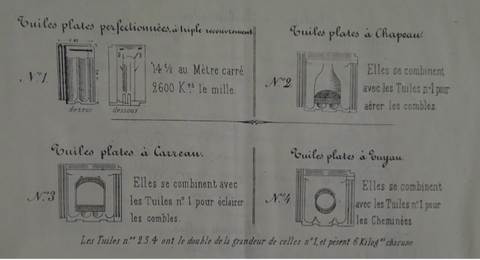 Tuiles plates perfectionnées, à triple recouvrement
Nº1.
dessus
dessous
14 ½ au Mètre carré
2600 Kos le mille.
Tuiles plates à Chapeau.
Nº2.
Elles se combinent
avec les Tuiles nº1 pour
aérer les combles.
Tuiles plates à Carreau.
Nº3
Elles se combinent avec
les Tuiles nº 1 pour éclairer
les combles.
Tuiles plates à Tuyau.
Nº4
Elles se combinent
avec les Tuiles nº1 pour
les Cheminées
Les Tuiles nos 2.3.4 ont le double de la grandeur de celles nº1, et pèsent 6 Kilogmes chacune